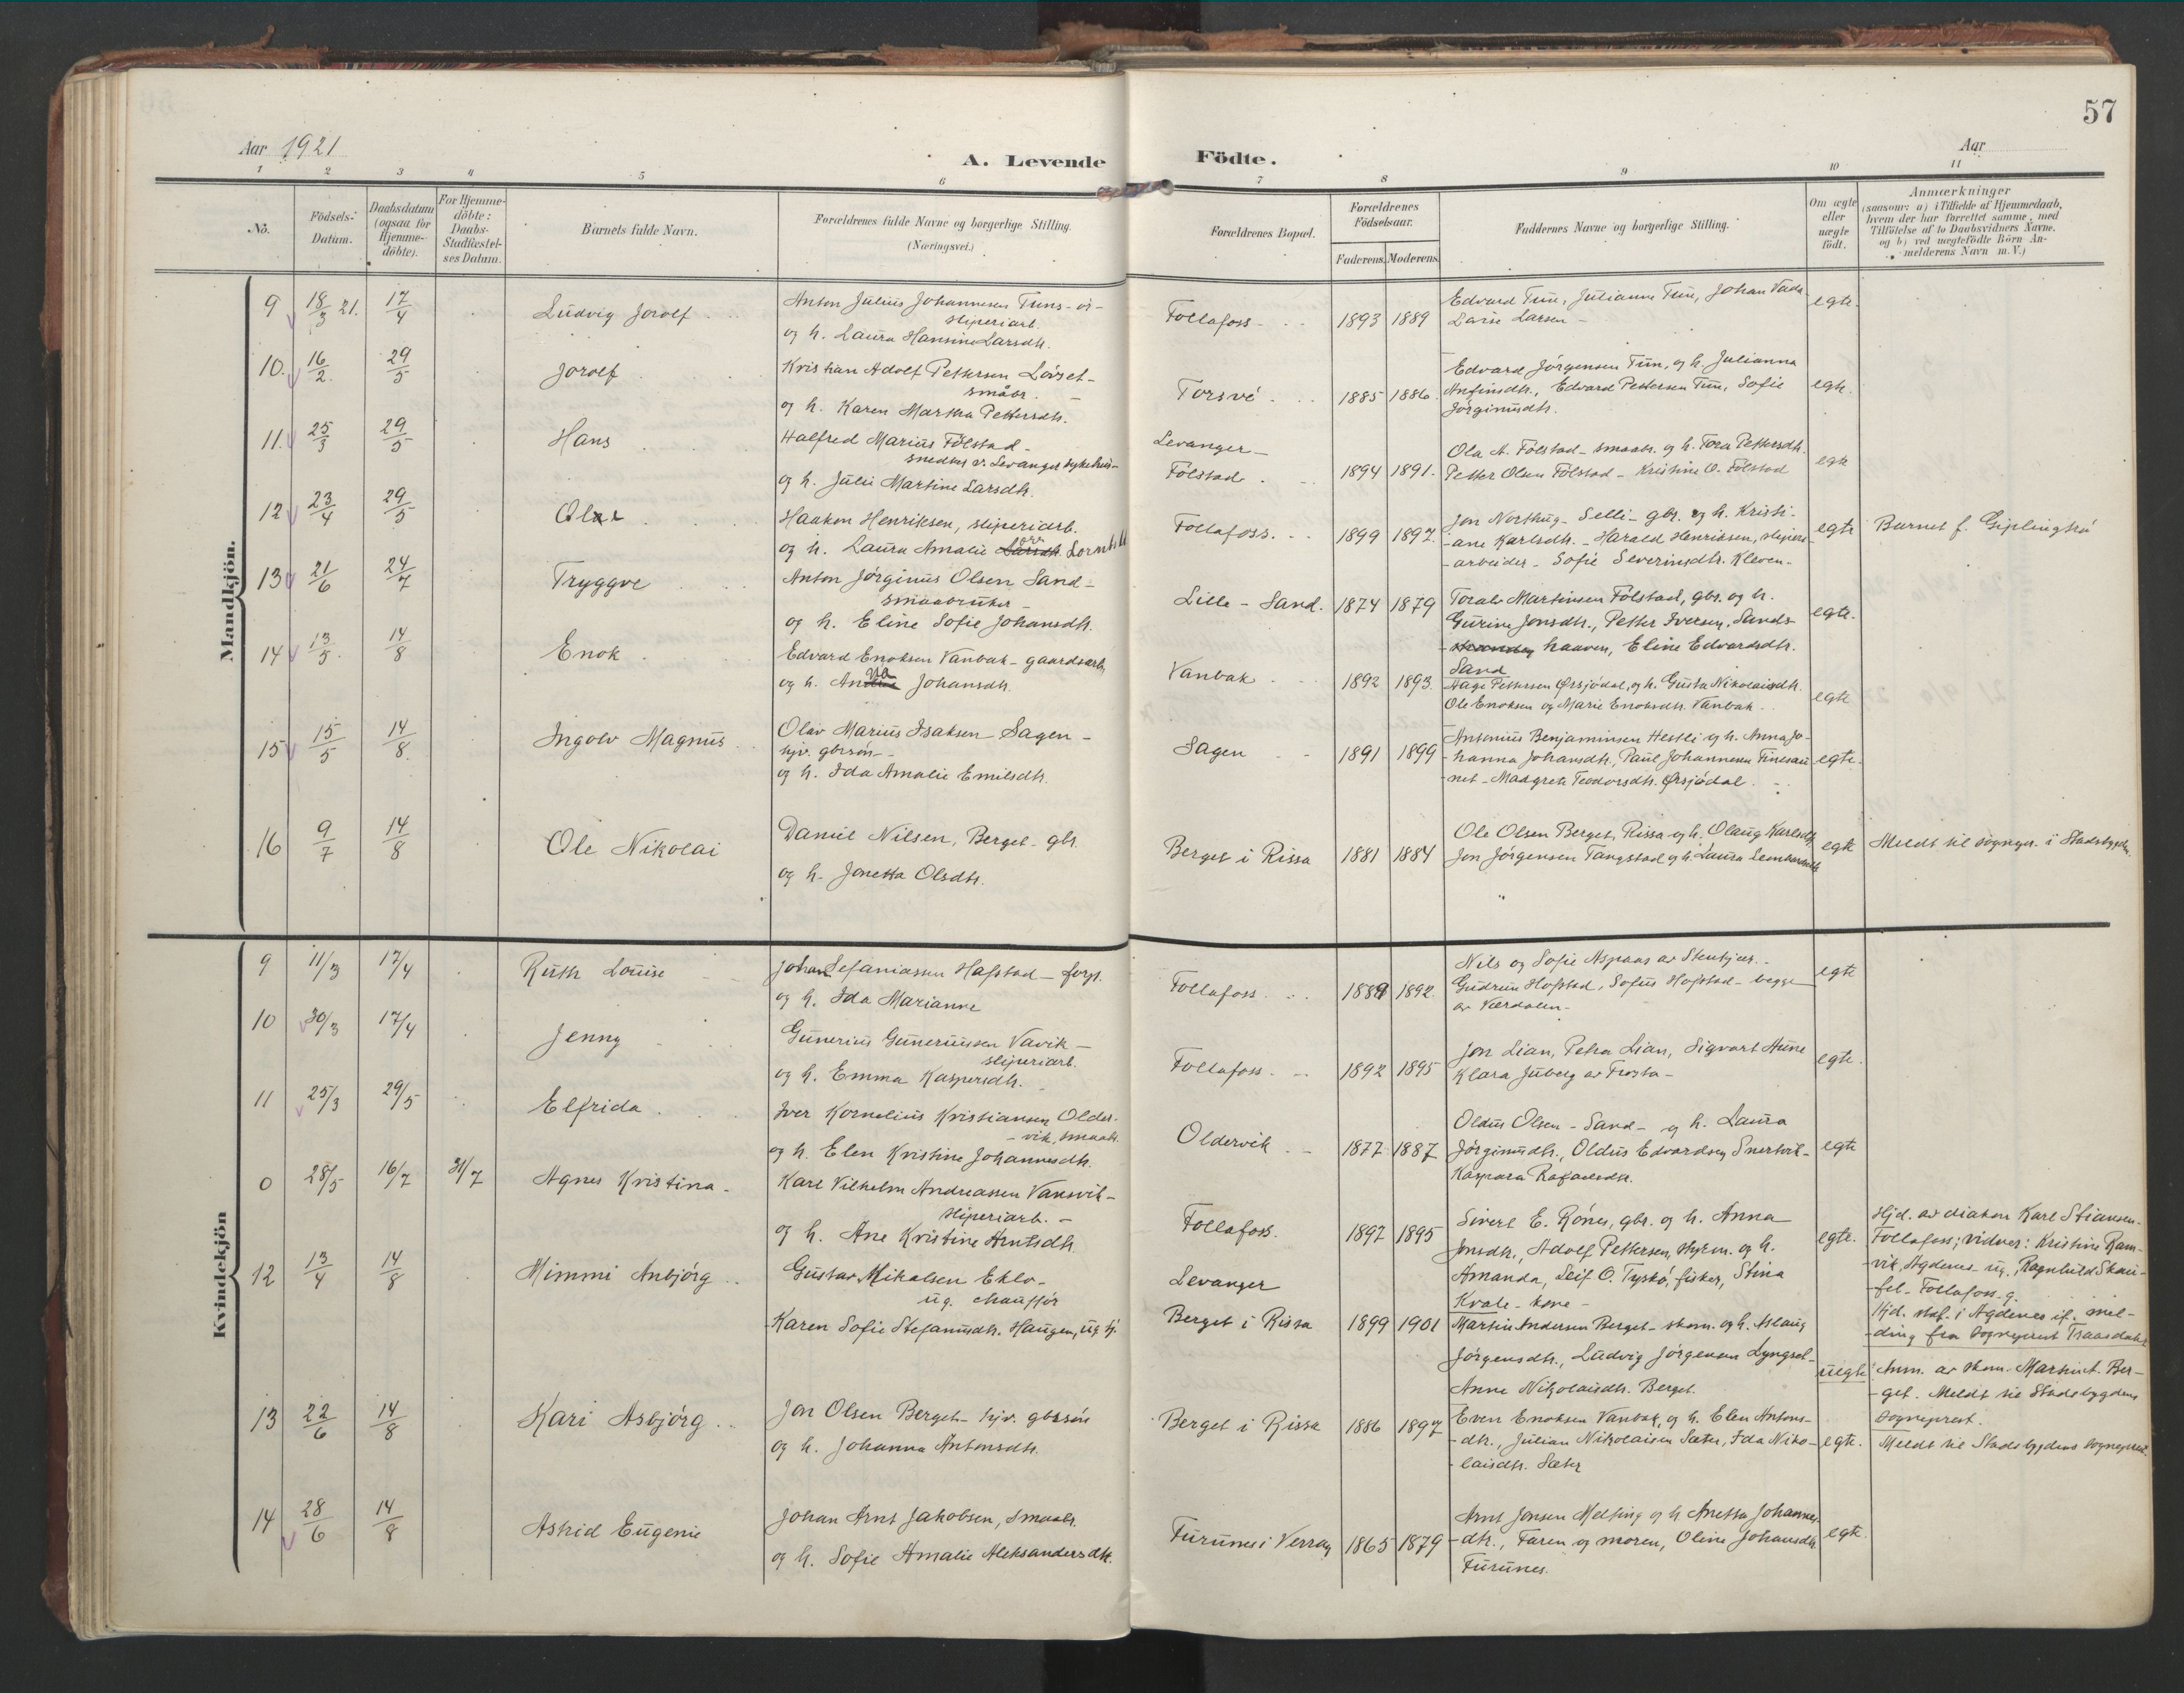 57
Aar 1921
A. Levende Födte.
Aar
1 2 3 4 5 6 7 8 9 10 11
No.
Födsels-
Datum.
Daabsdatum
(ogsaa for
Hjemme-
döbte).
For Hjemme-
döbte:
Daabs-
Stadfæstel-
ses Datum.
Barnets fulde Navn.
Forældrenes fulde Navne og borgerlige Stilling.
(Næringsvei.)
Forældrenes Bopæl.
Forældrenes
Födselsaar.
Faderens. Moderens.
Faddernes Navne og borgerlige Stilling.
Om ægte
eller
uægte
födt.
Anmærkninger
(saasom: a) i Tilfælde af Hjemmedaab,
hvem der har forrettet samme, med
Tilföielse af to Daabsvidners Navne.
og b) ved uægtefödte Börn An-
melderens Navn m. V.)
Mandkjön.
9 18/3 21. 17/4 Ludvig Jorolf
Anton Julius Johannesen Tuns-
sliperiarb.
og h. Laura Hansine Larsdtr.
Follafoss 1893 1889
Edvard Tun, Julianne Tun, Johan
Larsen
egte.
10. 16/2. 29/5 Jorolf
Kristian Adolf Pettersen Lövset-
småbr.
og h. Karen Martha Pettersdtr.
Torsvé 1885 1886.
Edvard Jörgensen Tun, og h. Julianna
Anfinsdtr., Edvard Pettersen Tun, Sofie
Jörginusdtr.
egte.
11. 25/3 29/5 Hans
Halfred Marius Fölstad-
snedker v. Levanger sykehus-
og h. Julie Martine Larsdtr.
Levanger-
Fölstad 1894 1891.
Ola A. Fölstad - smaabr. og h. Tora Pettersdtr.
Petter Olsen Fölstad - Kristine O. Fölstad
egte
12 23/4 29/5
Haakon Henriksen, sliperiarb.
og h. Laura Amalie
Follafoss. 1899 1897.
Jon Northug - Selli - gbr. og h. Kristi-
ane Karlsdtr. - Harald Henriksen, sliperi-
arbeider - Sofie Severinsdtr. Kleven-
egte
Barnet f.
13 21/6 24/7 Tryggve
Anton Jörginus Olsen Sand-
smaabruker-
og h. Eline Sofie Johansdtr.
Lille-Sand. 1874 1879
Toralv Martinsen Fölstad, gbr. og h.
Gurine Jonsdtr., Petter Iversen, Sands-
haaven, Eline Edvardsdtr.
Sand
egte.
14 13/5. 14/8 Enok
Edvard Enoksen Vanbak - gaardsarb.
og h. Johansdtr.
Vanbak 1892 1893.
Aage Pettersen Ørsjödal, og h. Gusta Nikolaisdtr.
Ole Enoksen og Marie Enoksdtr. Vanbak
egte
15 15/5 14/8. Ingolv Magnus
Olav Marius Isaksen Sagen-
hjv. gbrsön-
og h. Ida Amalie Emilsdtr.
Sagen 1891 1899
Antonius Benjaminsen Hestli og h. Anna Jo-
hanna Johansdtr., Paul Johannesen Tinesau-
net - Maagrete Teodorsdtr. Ørsjödal.
egte.
16 9/7 14/8 Ole Nikolai
Daniel Nilsen, Berget - gbr.
og h. Jonetta Olsdtr.
Berget i Rissa 1881 1884
Ole Olsen Berget, Rissa og h. Olaug Karlsdtr.
Jon Jörgensen Tangstad og h. Laura
egte
Meldt til sogнepr. i Stadsbygden.
Kvindekjön
9 11/3 17/4 Ruth Louise
Johan Lefaniassen Hafstad - forp.
og h. Ida Marianne
Follafoss. 1889 1892.
Nils og Sofie Aspaas av Stenkjær.
Gudrun Hofstad, Sofus Hofstad - begge
av Værdalen-
egte
10 30/3 17/4 Jenny
Gunerius Guneriussen Vavik-
sliperiarb.
og h. Emma Kaspersdtr.
Follafoss. 1892 1895
Jon Lian, Petra Lian, Sigvart Aune
Klara Juberg av Frosta-
egte.
11 25/3 29/5 Elfrida
Iver Kornelius Kristiansen Older-
vik, smaabr.
og h. Elen Kristine Johannesdtr.
Oldervik 1877 1887
Oldus Olsen - Sand - og h. Laura
Jörginusdtr., Oldus Edvardsen Snertvik-
Kaspara Rafaelsdtr.
egte
0 28/5 16/7 31/7 Agnes Kristina
Karl Vilhelm Andreassen Vansvik-
sliperiarb.-
og h. Ane Kristine Arntsdtr.
Follafoss. 1897 1895
Sivert E. Rönes, gbr. og h. Anna
Jonsdtr., Adolf Pettersen, styrm. og h.
Amanda, Leif O. Tyskö, fisker, Stina
Kvale - kone-
egte.
Hjd. av diakon Karl Stiansen-
Follafoss; vidner: Kristine Ram-
vik, Agdenes - ug., Ragnhild Skau-
fel - Follafoss - g.
Hjd. staf. i Agdenes if. mel-
ding fra sogneprest Traasdahl
12 13/4 14/8 Mimmi Anbjörg
Gustav Mikalsen Eklo-
ug. chaufför
Karen Sofie Stefanusdtr. Haugen, ug. tj.
Levanger
Berget i Rissa 1899 1901
Martin Andersen Berget - skom. og h. Aslaug
Jörgensdtr., Ludvig Jörgensen Lyngset-
Anne Nikolaisdtr. Berget.
uegte
Anm. av skom. Martin A. Ber-
get. Meldt til Stadsbygdens
sogneprest.
13 22/6 14/8 Kari Asbjörg
Jon Olsen Berget - hjv. gbrsön
og h. Johanna Antonsdtr.
Berget i Rissa 1886 1897
Even Enoksen Vanbak, og h. Elen Antons-
dtr., Julian Nikolaisen Sæter, Ida Niko-
laisdtr. Sæter
egte.
Meldt til Stadsbygdens sogneprest.
14 28/6 14/8 Astrid Eugenie
Johan Arnt Jakobsen, smaabr.
og h. Sofie Amalie Aleksandersdtr.
Furunes i Verran 1865 1879
Arnt Jensen Melting og h. Anetta Johannes-
dtr., Faren og moren, Oline Johansdtr.
Furunes.
egte.